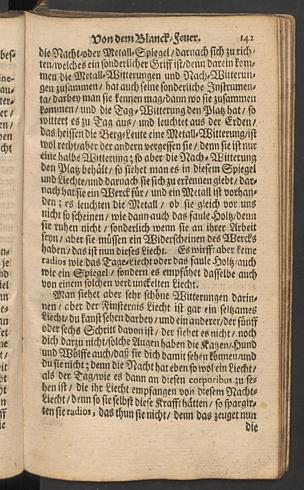 Von dem Blanck-Feuer. 142
die Nacht- oder Metall-Spiegel / darnach sich zu rich-
ten / welches ein sonderlicher Griff ist / denn darein kom-
men die Metall-Witterungen und Nach-Witterun-
gen zusammen / hat auch seine sonderliche Instrumen-
ta / darbey man sie kennen mag / dann wo sie zusammen
kommen / und die Tag-Witterung den Platz hat / so
wittert es zu Tag aus / und leuchtet aus der Erden /
das heissen die Berg-Leute eine Metall-Witterung / ist
wol recht / aber der andern vergessen sie / denn sie ist nur
eine halbe Witterung; so aber die Nach-Witterung
den Platz behält / so siehet man es in diesem Spiegel
und Liechte / und darnach sie sich zu erkennen giebt / dar-
nach hat sie ein Werck für / und ein Metall ist vorhan-
den; es leuchten die Metall / ob sie gleich vor uns
nicht so scheinen / wie dann auch das faule Holtz / denn
sie ruhen nicht / sonderlich wenn sie an ihrer Arbeit
seyn / aber sie müssen ein Widerscheinen des Wercks
haben / das ist nun dieses Liecht. Es wirfft aber keine
radios wie das Tage-Liecht oder das faule Holtz / auch
wie ein Spiegel / sondern es empfähet dasselbe auch
von einem solchen verdunckelten Liecht.
Man siehet aber sehr schöne Witterungen darin-
nen / aber der Finsternis Liecht ist gar ein seltzames
Liecht / du kanst sehen darbey / und ein anderer / der fünff
oder sechs Schritt davon ist / der siehet es nicht / noch
dich darzu nicht / solche Augen haben die Katzen / Hund
und Wölffe auch / daß sie dich damit sehen können / und
du sie nicht; denn die Nacht hat eben so wol ein Liecht /
als der Tag / wie es dann an diesen corporibus zu se-
hen ist / die ihr Liecht empfangen von diesem Nacht-
Liecht / denn so sie selbst diese Krafft hätten / so spargir-
ten sie radios, das thun sie nicht / denn das zeuget nun
die